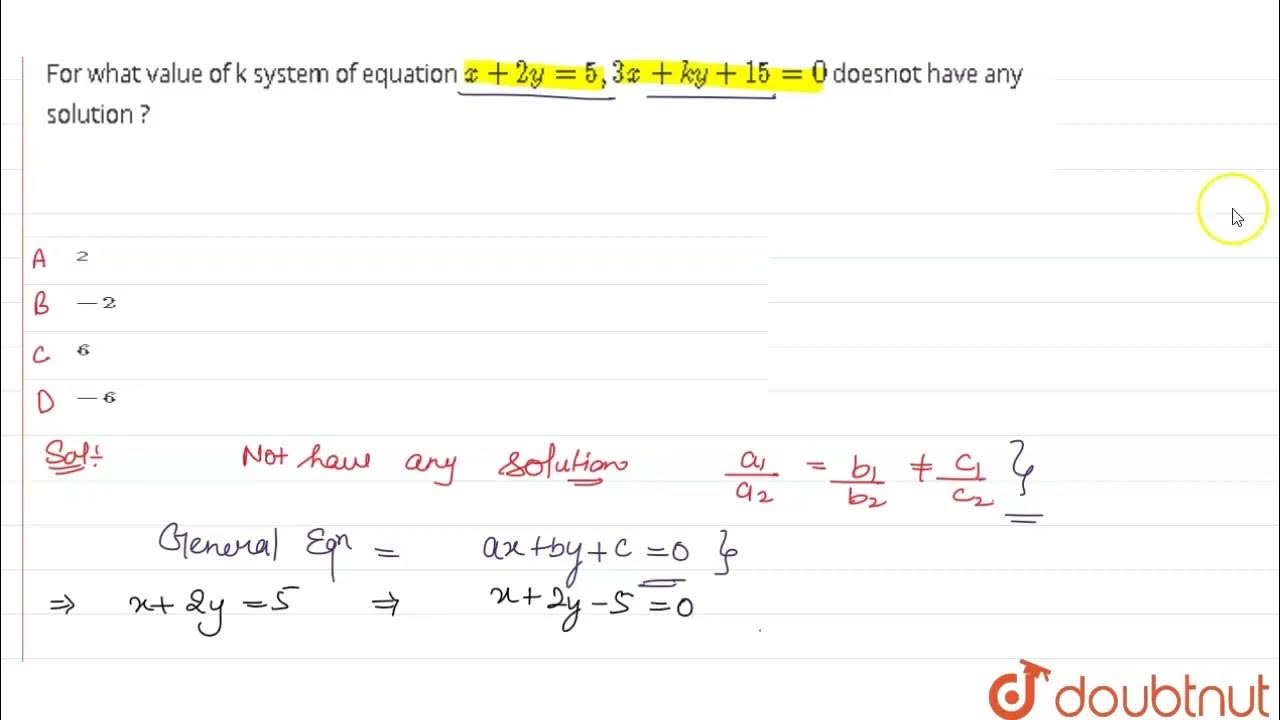 For what value of k system of equation x + 2y = 5, 3x + ky + 15 = 0 doesnot have any
solution ?
A 2
B −2
C 6
D −6
Sol: Not have any solution a₁/a₂ = b₁/b₂ ≠ c₁/c₂ }
General Eqn = ax+by+c=0 }
⇒ x+2y=5 ⇒ x+2y-5=0
doubtnut